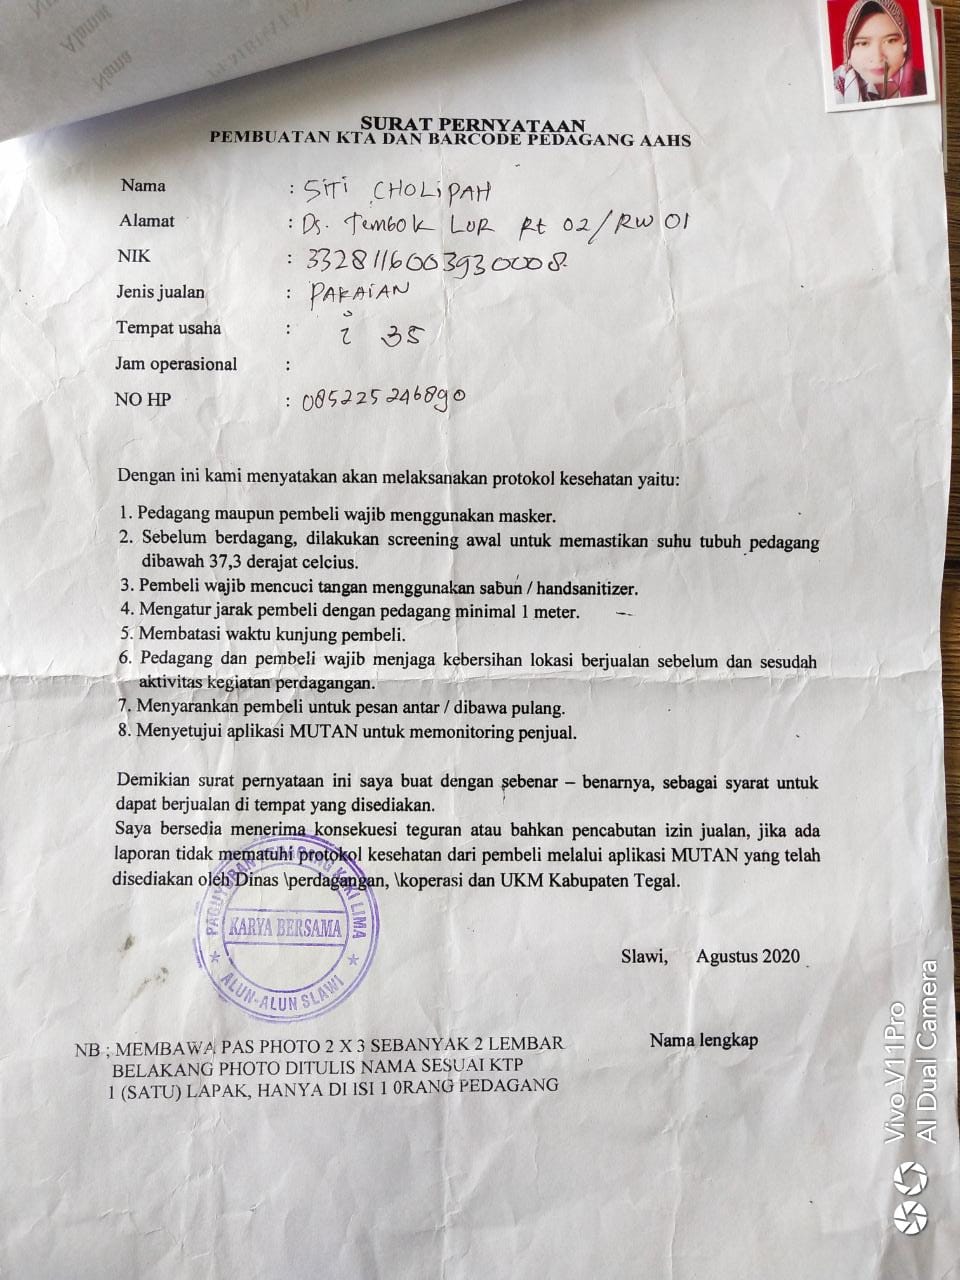 Nama
Alamat
SURAT PERNYATAAN
PEMBUATAN KTA DAN BARCODE PEDAGANG AAHS
Nama : SITI CHOLIPAH
Alamat : Ds. Tembok LUR Rt 02/RW 01
NIK : 3328116003930008
Jenis jualan : PAKAIAN
Tempat usaha : i 35
Jam operasional :
NO HP : 085225246890
Dengan ini kami menyatakan akan melaksanakan protokol kesehatan yaitu:
1. Pedagang maupun pembeli wajib menggunakan masker.
2. Sebelum berdagang, dilakukan screening awal untuk memastikan suhu tubuh pedagang
dibawah 37,3 derajat celcius.
3. Pembeli wajib mencuci tangan menggunakan sabun / handsanitizer.
4. Mengatur jarak pembeli dengan pedagang minimal 1 meter.
5. Membatasi waktu kunjung pembeli.
6. Pedagang dan pembeli wajib menjaga kebersihan lokasi berjualan sebelum dan sesudah
aktivitas kegiatan perdagangan.
7. Menyarankan pembeli untuk pesan antar / dibawa pulang.
8. Menyetujui aplikasi MUTAN untuk memonitoring penjual.
Demikian surat pernyataan ini saya buat dengan sebenar – benarnya, sebagai syarat untuk
dapat berjualan di tempat yang disediakan.
Saya bersedia menerima konsekuesi teguran atau bahkan pencabutan izin jualan, jika ada
laporan tidak mematuhi protokol kesehatan dari pembeli melalui aplikasi MUTAN yang telah
disediakan oleh Dinas \perdagangan, \koperasi dan UKM Kabupaten Tegal.
PAGUYUBAN PEDAGANG KAKI LIMA
KARYA BERSAMA
ALUN-ALUN SLAWI
Slawi, Agustus 2020
Nama lengkap
NB ; MEMBAWA PAS PHOTO 2 X 3 SEBANYAK 2 LEMBAR
BELAKANG PHOTO DITULIS NAMA SESUAI KTP
1 (SATU) LAPAK, HANYA DI ISI 1 0RANG PEDAGANG
Vivo V11Pro
AI Dual Camera